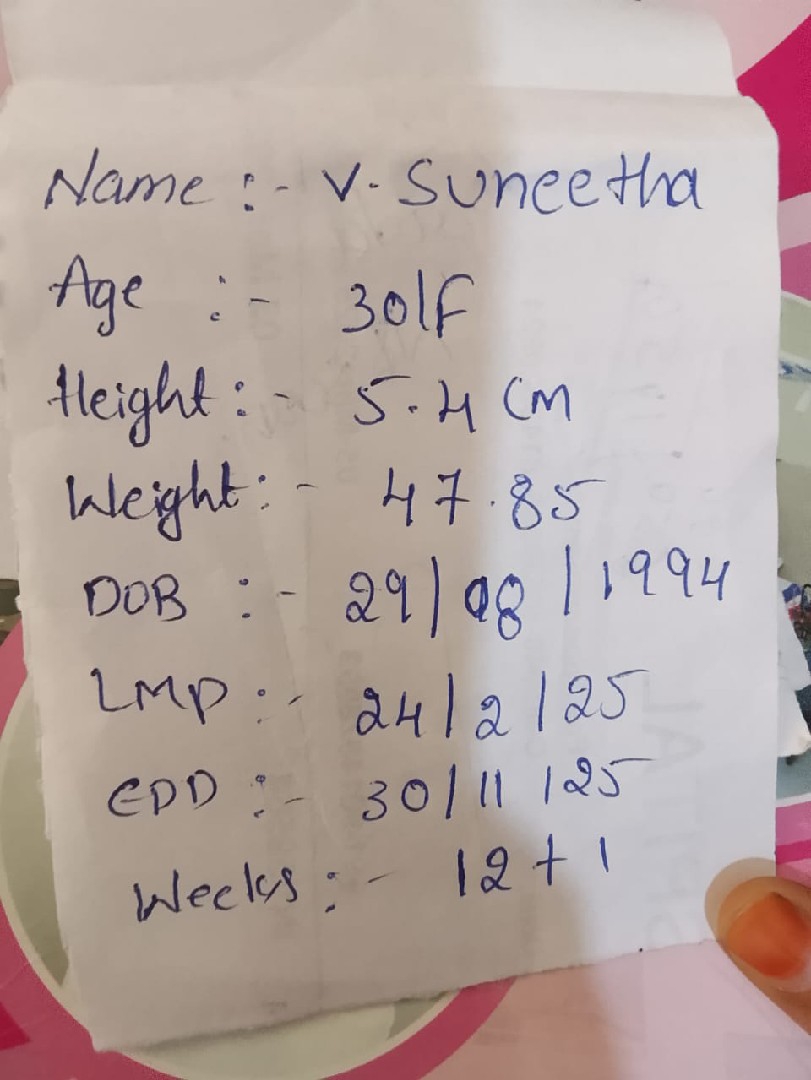 Name :- V. Suneetha
Age :- 30/F
Height :- 5.4 CM
Weight :- 47.85
DOB :- 29/08/1994
LMP :- 24/2/25
EDD :- 30/11/25
Weeks :- 12+1